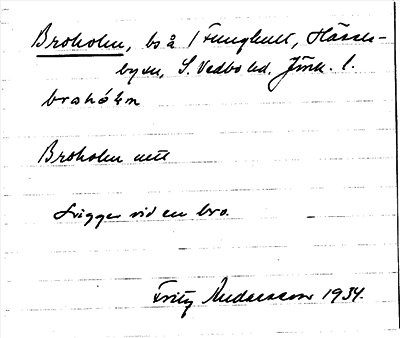 Broholm, bs å Ljunghult, Hässle-
bysn, S. Vedbo hd. Jönk. l.
brohółm
Broholm nett
Ligger vid en bro.
Fritz Andersson 1934.